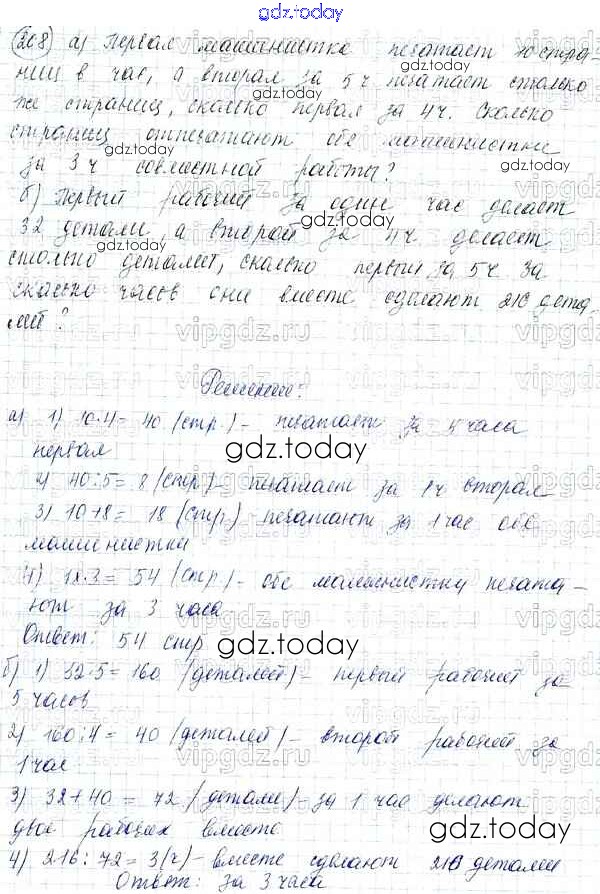 gdz.today
208) а) Первая машинистка печатает 10 стра-
ниц в час, а вторая за 5 ч печатает столько
же страниц, сколько первая за 4 ч. Сколько
страниц отпечатают обе машинистки
за 3 ч совместной работы?
gdz.today
б) Первый рабочий за один час делает
32 детали, а второй за 4 ч делает
gdz.today
столько деталей, сколько первый за 5 ч За
сколько часов они вместе сделают 216 дета
лей?
vipgdz.ru
Решение:
а) 1) 10·4 = 40 (стр.) - печатает за 4 часа
первая
gdz.today
2) 40:5 = 8 (стр.) - печатает за 1 ч вторая
3) 10+8 = 18 (стр.) - печатают за 1 час обе
машинистки
4) 18·3 = 54 (стр) - обе машинистки печата-
ют за 3 часа
Ответ: 54 стр
gdz.today
б) 1) 32·5 = 160 (деталей) - первый рабочий за
5 часов
2) 160:4 = 40 (деталей) - второй рабочий за
1 час
3) 32+40 = 72 (детали) - за 1 час делают
двое рабочих вместе
gdz.today
4) 216:72 = 3 (ч) - вместе сделают 216 детали
Ответ: за 3 часа